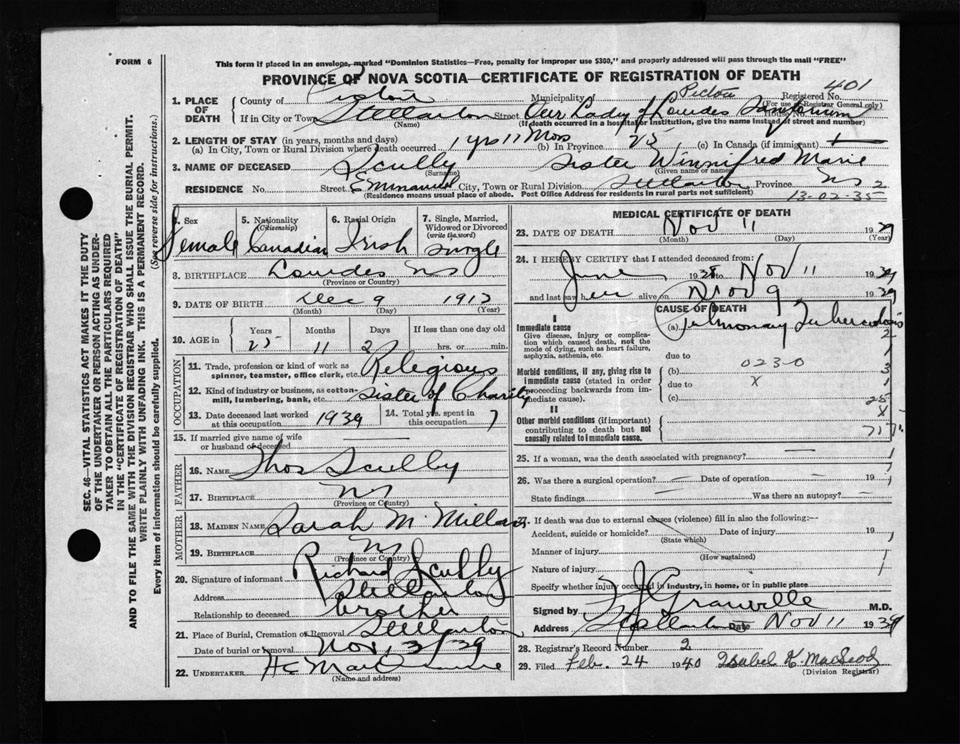 FORM 6
This form if placed in an envelope, marked "Dominion Statistics—Free, penalty for improper use $300," and properly addressed will pass through the mail "FREE"
PROVINCE OF NOVA SCOTIA—CERTIFICATE OF REGISTRATION OF DEATH
SEC. 46—VITAL STATISTICS ACT MAKES IT THE DUTY
OF THE UNDERTAKER OR PERSON ACTING AS UNDER-
TAKER TO OBTAIN ALL THE PARTICULARS REQUIRED
IN THE "CERTIFICATE OF REGISTRATION OF DEATH"
AND TO FILE THE SAME WITH THE DIVISION REGISTRAR WHO SHALL ISSUE THE BURIAL PERMIT.
WRITE PLAINLY WITH UNFADING INK. THIS IS A PERMANENT RECORD.
Every item of information should be carefully supplied. (See reverse side for instructions.)
1. PLACE OF DEATH
County of Pictou Municipality Pictou Registered No. 401
(For use of Registrar General only)
If in City or Town Stellarton Street Our Lady of Lourdes
(Name) (If death occurred in a hospital or institution, give the name instead of street and number)
2. LENGTH OF STAY (in years, months and days)
(a) In City, Town or Rural Division where death occurred 1 yrs 11 Mos (b) In Province 25 (c) In Canada (if immigrant)
3. NAME OF DECEASED Scully Sister Winnifred Marie
(Surname) (Given name or names)
RESIDENCE No. Street City, Town or Rural Division Stellarton Province NS 2
(Residence means usual place of abode. Post Office Address for residents in rural parts not sufficient)
13-02-35
4. Sex Female
5. Nationality (Citizenship) Canadian
6. Racial Origin Irish
7. Single, Married, Widowed or Divorced (write the word) Single
8. BIRTHPLACE Lourdes NS
(Province or Country)
9. DATE OF BIRTH Dec 9 1913
(Month) (Day) (Year)
10. AGE in Years Months Days If less than one day old
25 11 2 hrs. or min.
OCCUPATION
11. Trade, profession or kind of work as spinner, teamster, office clerk, etc. Religious
12. Kind of industry or business, as cotton-mill, lumbering, bank, etc. Sister of Charity
13. Date deceased last worked at this occupation 1939
14. Total yrs. spent in this occupation 7
15. If married give name of wife or husband of deceased
FATHER
16. NAME Thos Scully
17. BIRTHPLACE NS
(Province or Country)
MOTHER
18. MAIDEN NAME Sarah M Millan
19. BIRTHPLACE NS
(Province or Country)
20. Signature of informant Richard Scully
Address Stellarton
Relationship to deceased brother
21. Place of Burial, Cremation or Removal Stellarton
Date of burial or removal Nov, 13/39
22. UNDERTAKER
(Name and address)
MEDICAL CERTIFICATE OF DEATH
23. DATE OF DEATH Nov 11 1939
(Month) (Day) (Year)
24. I HEREBY CERTIFY that I attended deceased from:
June 1938 to Nov 11 1939
and last saw her alive on Nov 9 1939
CAUSE OF DEATH
I
Immediate cause
Give disease, injury or complication which caused death, not the mode of dying, such as heart failure, asphyxia, asthenia, etc.
(a) Pulmonary Tuberculosis
due to
Morbid conditions, if any, giving rise to immediate cause (stated in order proceeding backwards from immediate cause).
(b) 023-0
due to x
(c)
II
Other morbid conditions (if important) contributing to death but not causally related to immediate cause.
25. If a woman, was the death associated with pregnancy?
26. Was there a surgical operation? Date of operation 19
State findings Was there an autopsy?
27. If death was due to external causes (violence) fill in also the following:—
Accident, suicide or homicide? Date of injury 19
(State which)
Manner of injury
(How sustained)
Nature of injury
Specify whether injury occurred in industry, in home, or in public place
Signed by J Granville M.D.
Address Stellarton Date Nov 11 1939
28. Registrar's Record Number 2
29. Filed Feb. 24 1940 Isabel K. MacLeod
(Division Registrar)